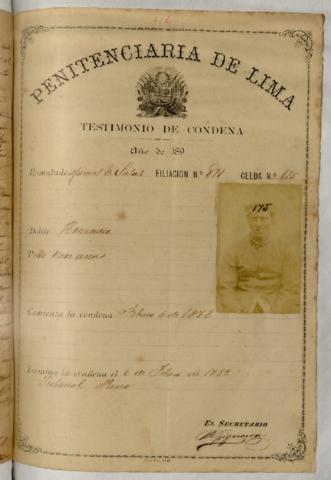 PENITENCIARIA DE LIMA
TESTIMONIO DE CONDENA
Año de 189
Rematado Salas FILIACION N.º 871 CELDA N.º 175
175
Delito Homicidio
Pena años
Comienza la condena Febrero 6 de 1878
Termina la condena el 6 de Febro de 1889
Tribunal Puno
EL SECRETARIO